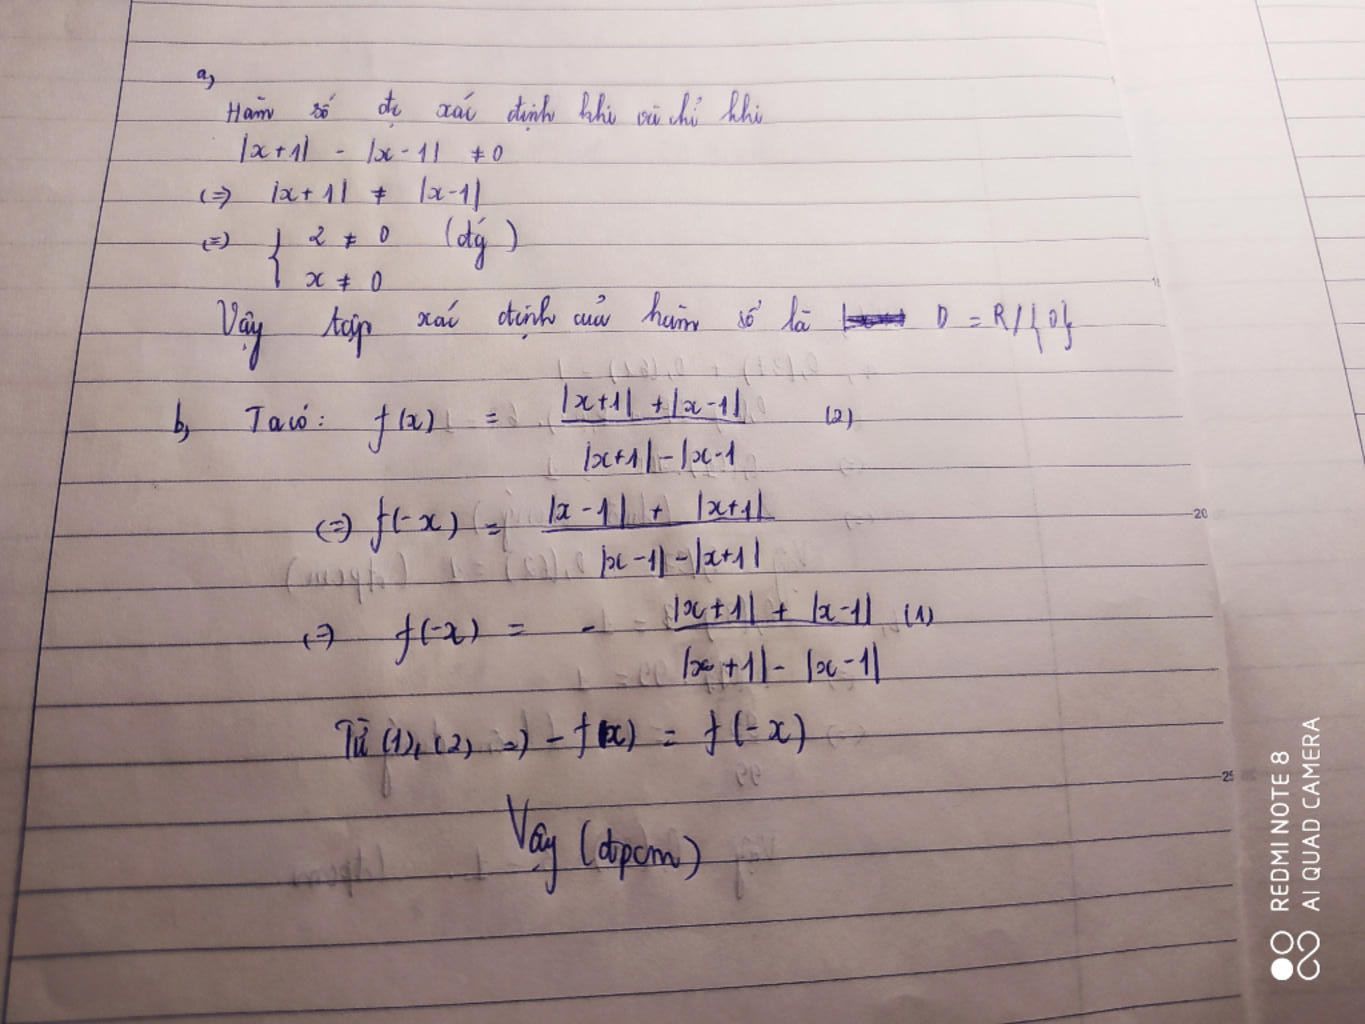 a,
Hàm số đc xác định khi và chỉ khi
|x+1| - |x-1| ≠ 0
(=) |x+1| ≠ |x-1|
(=) { 2 ≠ 0 (đ/ý)
x ≠ 0
Vậy tập xác định của hàm số là D = R/{0}
b, Ta có: f(x) = |x+1| + |x-1| / |x+1| - |x-1 (2)
(=) f(-x) = |x-1| + |x+1| / |x-1| - |x+1|
(=) f(-x) = - |x+1| + |x-1| / |x+1| - |x-1| (1)
Từ (1), (2) =) - f(x) = f(-x)
Vậy (đpcm)
20
25
REDMI NOTE 8
AI QUAD CAMERA